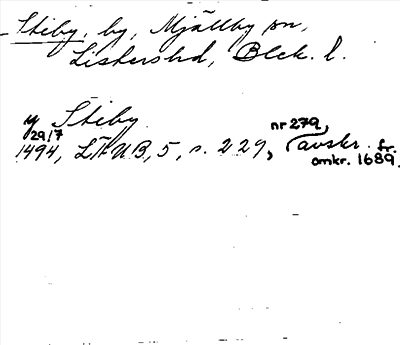 Stiby, by, Mjällby sn,
Listers hd, Blek. l.
y Stiby
29/7 nr 279,
1494, LÄUB, 5, s. 229, (avskr. fr.
omkr. 1689.